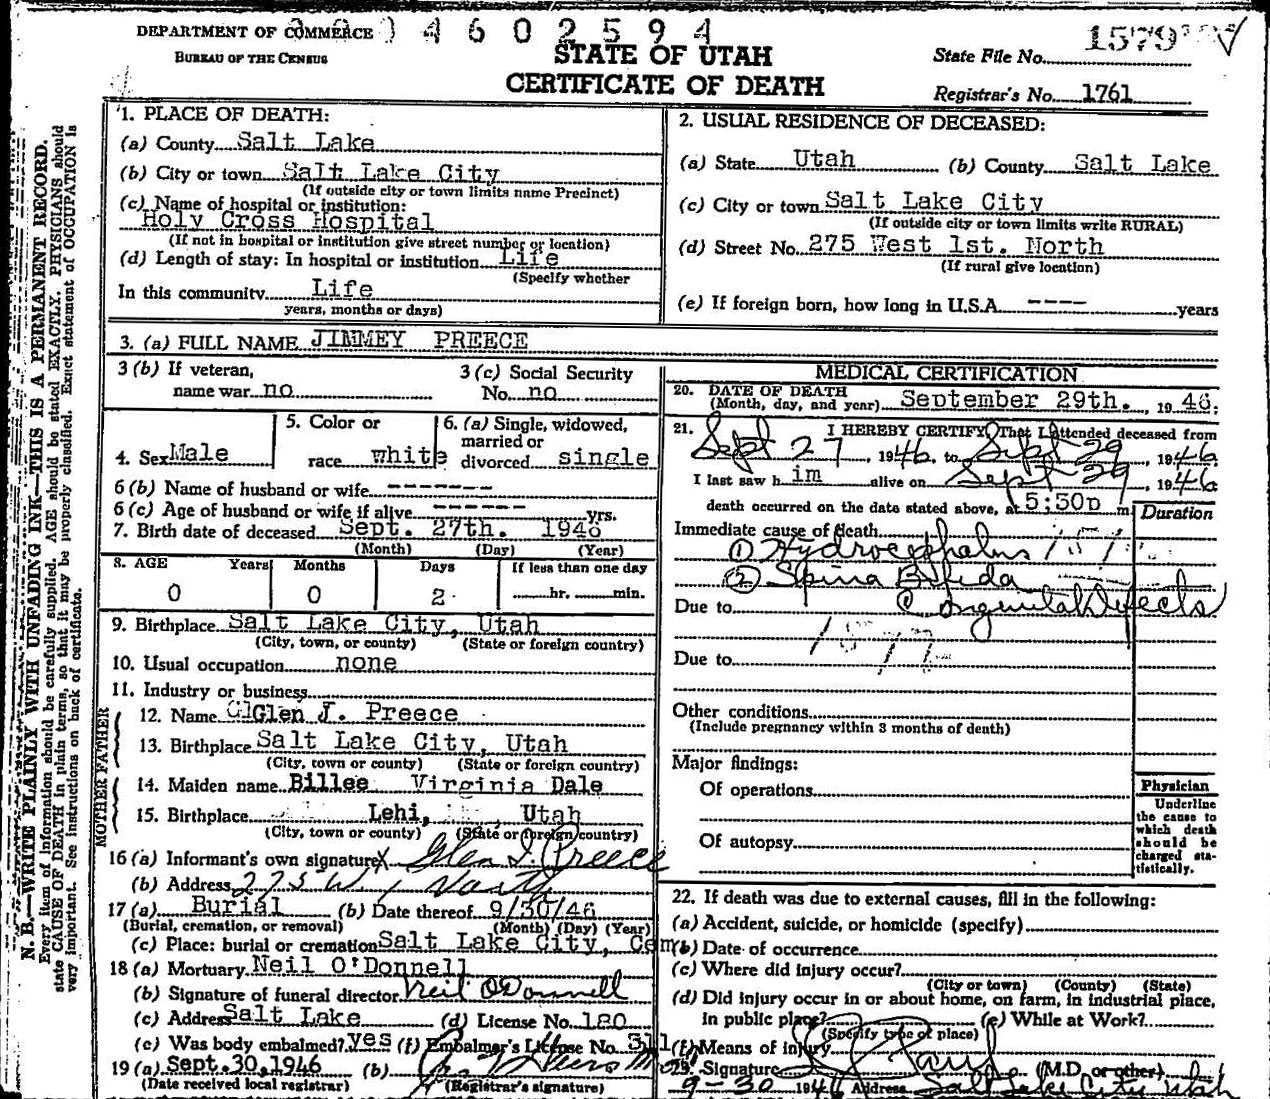 DEPARTMENT OF COMMERCE 4 6 0 2 5 9 4
BUREAU OF THE CENSUS
STATE OF UTAH
CERTIFICATE OF DEATH
State File No. 1579
Registrar's No. 1761
N. B.—WRITE PLAINLY WITH UNFADING INK—THIS IS A PERMANENT RECORD.
Every item of information should be carefully supplied. AGE should be stated EXACTLY. PHYSICIANS should
state CAUSE OF DEATH in plain terms, so that it may be properly classified. Exact statement of OCCUPATION is
very important. See instructions on back of certificate.
1. PLACE OF DEATH:
(a) County Salt Lake
(b) City or town Salt Lake City
(If outside city or town limits name Precinct)
(c) Name of hospital or institution:
Holy Cross Hospital
(If not in hospital or institution give street number or location)
(d) Length of stay: In hospital or institution Life
(Specify whether
In this community Life
years, months or days)
2. USUAL RESIDENCE OF DECEASED:
(a) State Utah (b) County Salt Lake
(c) City or town Salt Lake City
(If outside city or town limits write RURAL)
(d) Street No. 275 West 1st. North
(If rural give location)
(e) If foreign born, how long in U.S.A. ---- years
3. (a) FULL NAME JIMMEY PREECE
3 (b) If veteran,
name war no
3 (c) Social Security
No. no
4. Sex Male
5. Color or
race white
6. (a) Single, widowed,
married or
divorced single
6 (b) Name of husband or wife -------
6 (c) Age of husband or wife if alive ------- yrs.
7. Birth date of deceased Sept. 27th. 1946
(Month) (Day) (Year)
8. AGE Years Months Days If less than one day
0 0 2 hr. min.
9. Birthplace Salt Lake City, Utah
(City, town, or county) (State or foreign country)
10. Usual occupation none
11. Industry or business
FATHER
12. Name Glen J. Preece
13. Birthplace Salt Lake City, Utah
(City, town or county) (State or foreign country)
MOTHER
14. Maiden name Billee Virginia Dale
15. Birthplace Lehi, Utah
(City, town or county) (State or foreign country)
16 (a) Informant's own signature X Glen J. Preece
(b) Address 275 W. 1 North
17 (a) Burial (b) Date thereof 9/30/46
(Burial, cremation, or removal) (Month) (Day) (Year)
(c) Place: burial or cremation Salt Lake City, Cem
18 (a) Mortuary Neil O'Donnell
(b) Signature of funeral director Neil O'Donnell
(c) Address Salt Lake (d) License No. 180
(e) Was body embalmed? yes (f) Embalmer's License No. 311
19 (a) Sept. 30, 1946 (b)
(Date received local registrar) (Registrar's signature)
MEDICAL CERTIFICATION
20. DATE OF DEATH
(Month, day, and year) September 29th. , 1946.
21. I HEREBY CERTIFY, That I attended deceased from
Sept 27, 1946, to Sept 29, 1946
I last saw him alive on Sept 29, 1946
death occurred on the date stated above, at 5:50p m
Duration
Immediate cause of death
(1) Hydrocephalus
(2) Spina Bifida
Due to Congenital Defects
157
Due to
Other conditions
(Include pregnancy within 3 months of death)
Major findings:
Of operations
Of autopsy
Physician
Underline
the cause to
which death
should be
charged sta-
tistically.
22. If death was due to external causes, fill in the following:
(a) Accident, suicide, or homicide (specify)
(b) Date of occurrence
(c) Where did injury occur?
(City or town) (County) (State)
(d) Did injury occur in or about home, on farm, in industrial place,
in public place? (e) While at Work?
(Specify type of place)
(f) Means of injury
23. Signature (M.D. or other)
9-30 1946 Address Salt Lake City Utah